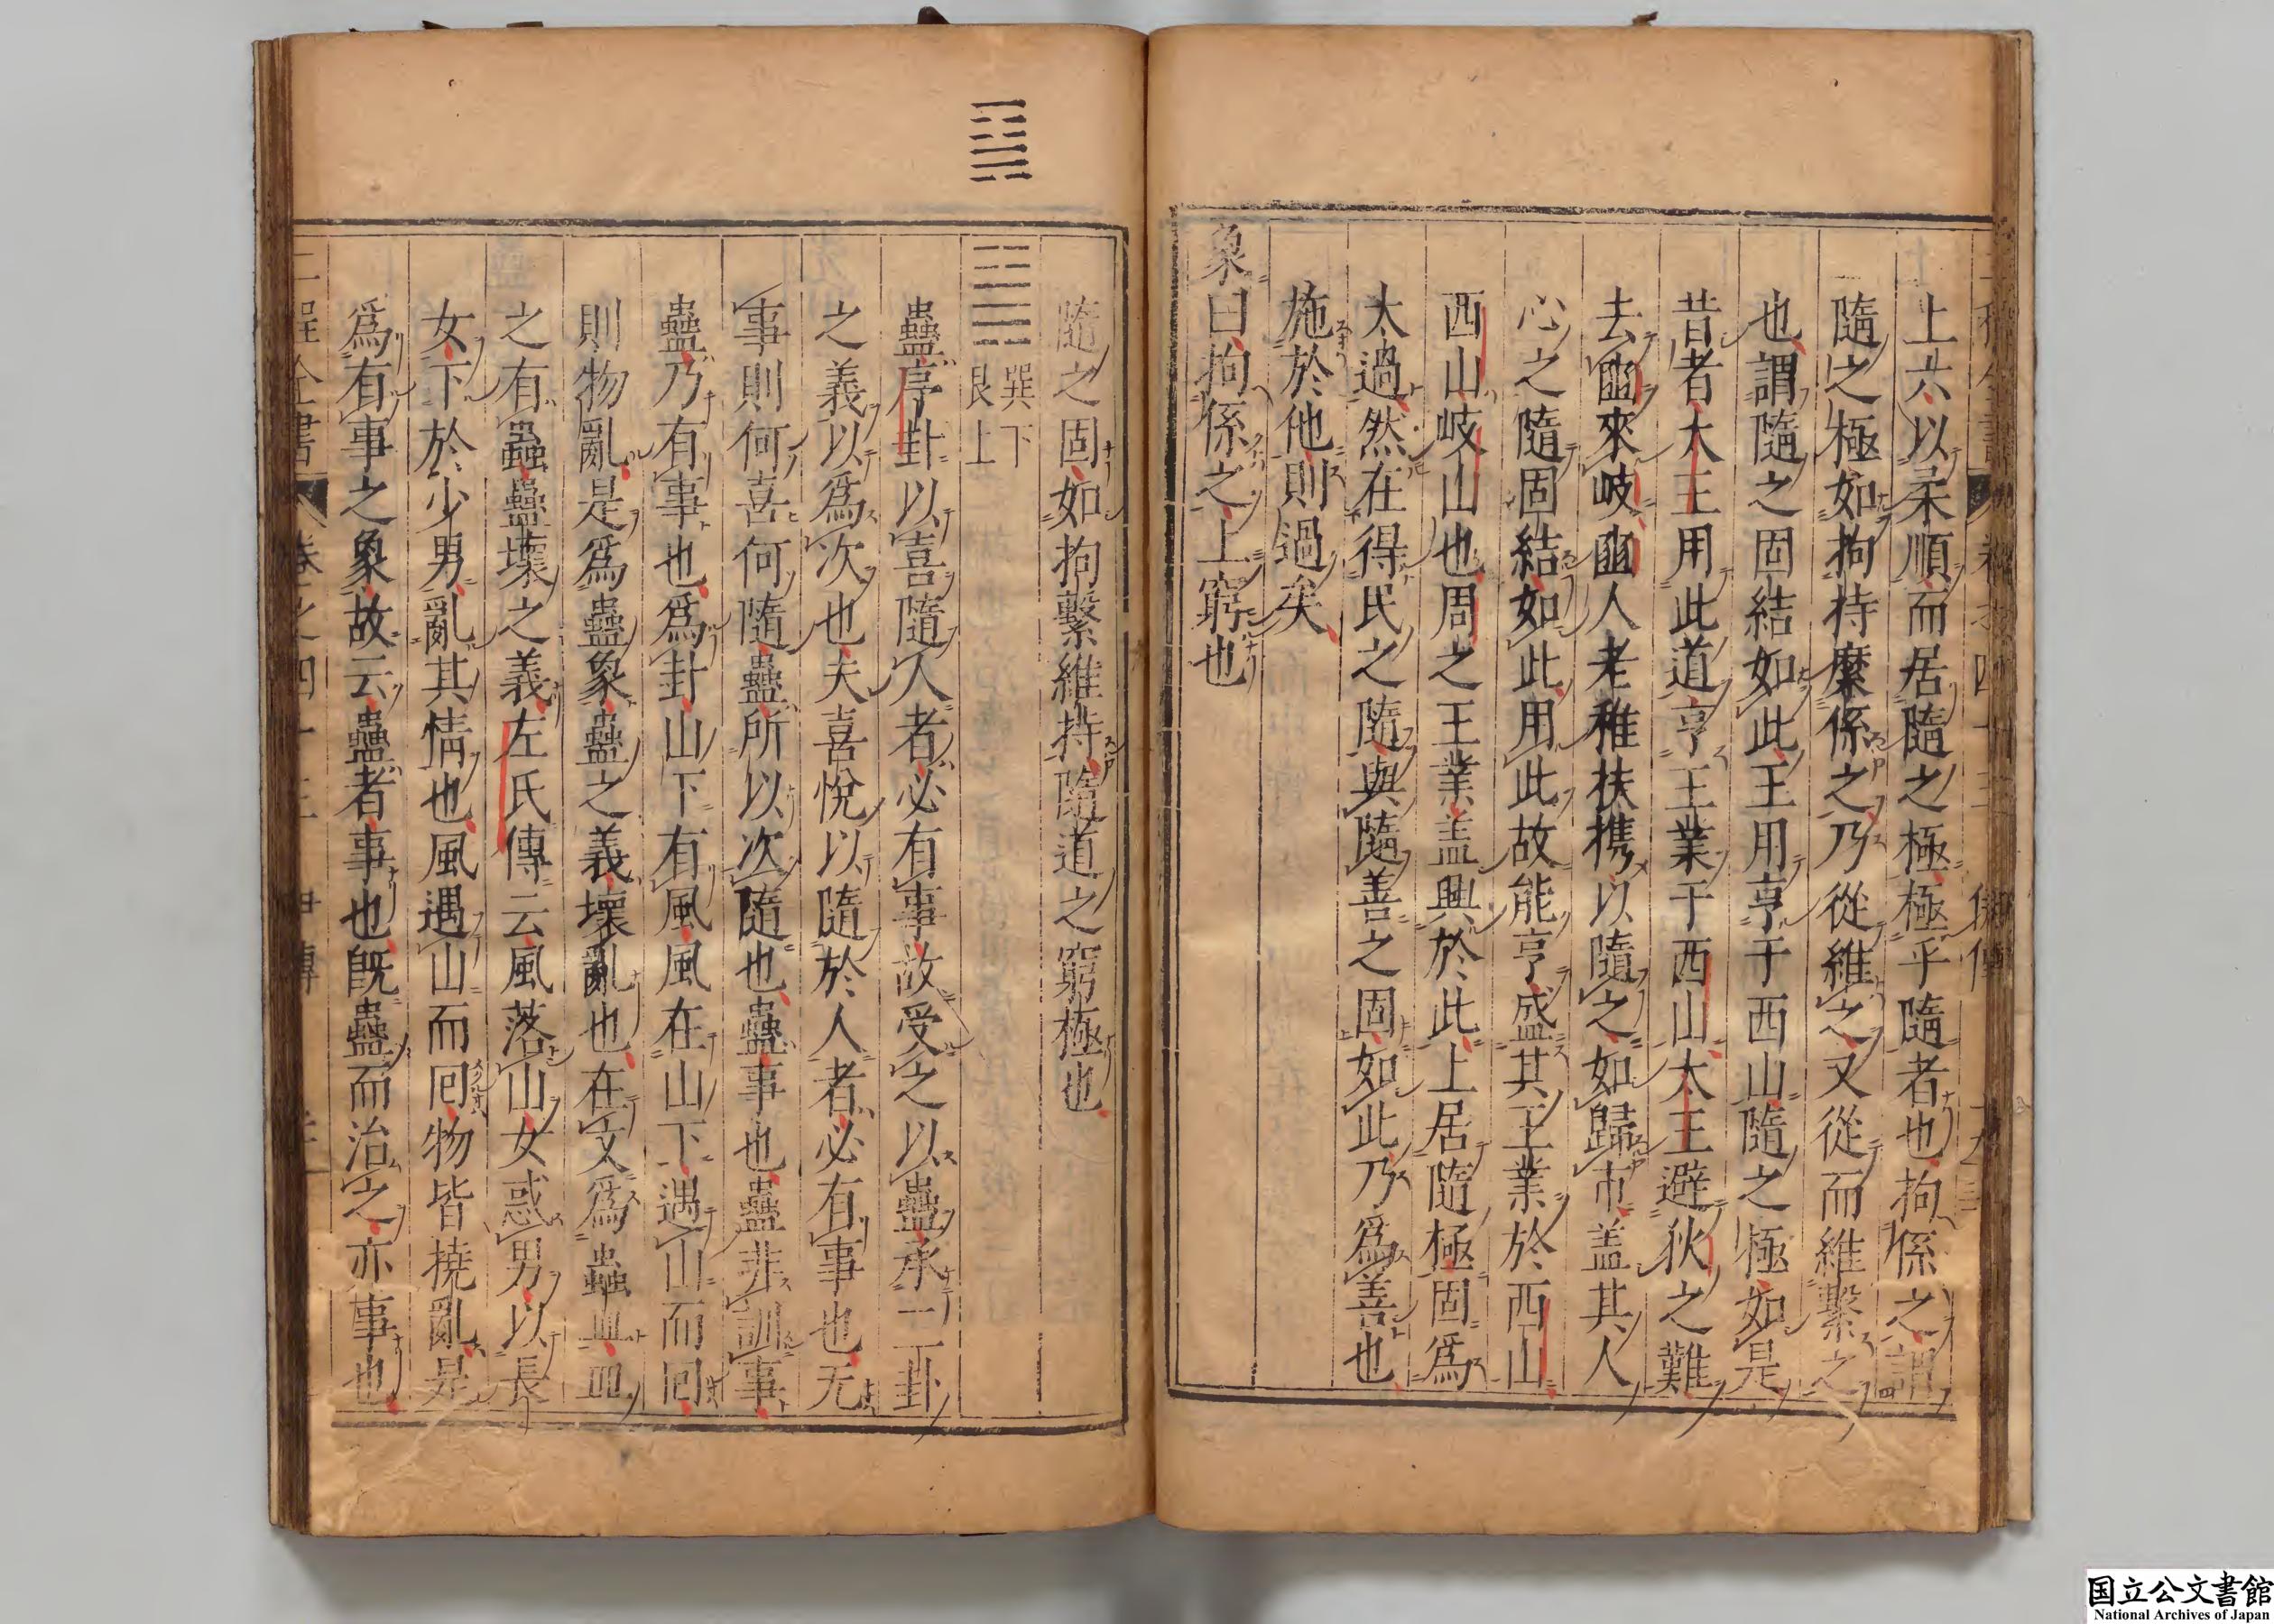 上六以柔順而居隨之極極乎隨者也拘係之謂
隨之極如拘持縻係之乃從維之又從而維繫之
也謂隨之固結如此王用亨于西山隨之極如是
昔者太王用此道亨王業于西山太王避狄之難
去豳來岐豳人老稚扶携以隨之如歸市盖其人
心之隨固結如此用此故能亨盛其王業於西山
西山岐山也周之王業盖興於此上居隨極固爲
太過然在得民之隨與隨善之固如此乃爲善也
施於他則過矣
象曰拘係之上窮也
隨之固如拘繫維持隨道之窮極也
巽下
艮上
蠱序卦以喜隨人者必有事故受之以蠱承二卦
之義以爲次也夫喜悅以隨於人者必有事也无
事則何喜何隨蠱所以次隨也蠱事也蠱非訓事
蠱乃有事也爲卦山下有風風在山下遇山而囘
則物亂是爲蠱象蠱之義壞亂也在文爲蟲皿皿
之有蟲蠱壞之義左氏傳云風落山女惑男以長
女下於少男亂其情也風遇山而囘物皆撓亂是
爲有事之象故云蠱者事也旣蠱而治之亦事也
二程全書 卷之四十三
国立公文書館
National Archives of Japan